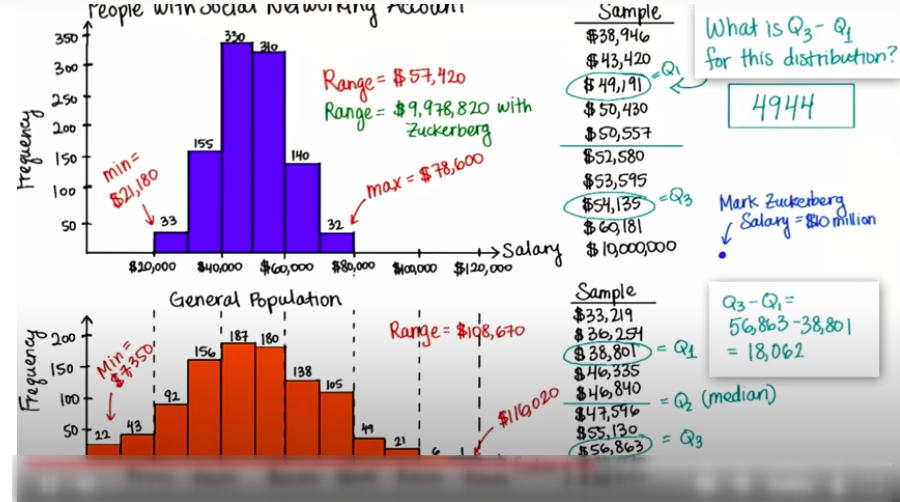 People with Social Networking Account
Frequency
350
300
250
200
150
100
50
33
155
330
310
140
32
min =
$21,180
Range = $57,420
Range = $9,978,820 with
Zuckerberg
max = $78,600
Salary
$20,000 $40,000 $60,000 $80,000 $100,000 $120,000
Sample
$38,946
$43,420
$49,191 = Q1
$50,430
$50,557
$52,580
$53,595
$54,135 = Q3
$60,181
$10,000,000
What is Q3 - Q1
for this distribution?
4944
Mark Zuckerberg
Salary = $10 million
General Population
Frequency
200
150
100
50
22
43
92
156
187
180
138
105
49
21
6
1
Min =
$7350
Range = $108,670
$116,020
Sample
$33,219
$36,254
$38,801 = Q1
$46,335
$46,840
$47,596 = Q2 (median)
$55,130
$56,863 = Q3
Q3 - Q1 =
56,863 - 38,801
= 18,062